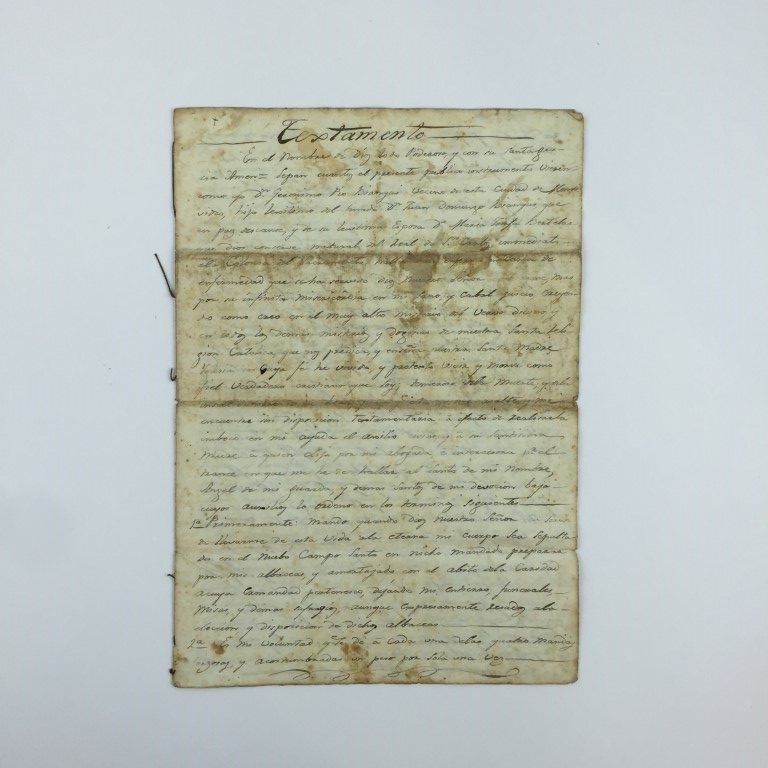 Textamento
En el Nombre de Dios todo Poderoso, y con su santa gra-
cia Amen= Sepan cuantos el presente publico instrumento vieren
como yo Dn. Geronimo Pio Bianqui Vecino de esta Ciudad de Monte
video, hijo lexitimo del finado Dn. Juan Domingo Bianqui, que
en paz descanse, y de su lexitima Esposa Da. Maria
que Dios conserve, natural del Real de Sn. Carlos, inmediato
a la Colonia del Sacramento
enfermedad que se ha servido Dios Nuestro Señor mas
por su infinita misericordia en mi sano, y Cabal juicio creyen-
do como creo en el muy alto misterio del
en todos los demas misterios y dogmas de nuestra Santa Reli
gion Catolica, que nos predica, y enseña nuestra Santa Madre
Yglesia en cuya fe he vivido, y protesto vivir y morir como
fiel verdadero cristiano que soy; temeroso de la Muerte, y
encuentre sin disposicion textamentaria a efecto de realizarla
imboco en mi ayuda el auxilio su santisima
Madre a quien elijo por mi abogada, e intercesora pa. el
trance en que me he de hallar, al santo de mi nombre,
Angel de mi guarda, y demas santos de mi devocion bajo
cuyos auxilios lo ordeno en los terminos siguientes
1a. Primeramente: Mando, quando Dios nuestro Señor
de llevarme de esta vida a la eterna mi cuerpo sea sepulta-
do en el Nuebo Campo Santo en nicho mandado preparar
por mis albaceas, y amortajado con el abito de la Caridad
a cuya Ermandad pertenesco, dejando mi entierro, funerales,
Misas, y demas sufragios, aunque expresamente a la
eleccion y disposicion de dichos albaceas
2a. Es mi voluntad, q.e se dé á cada una de las quatro Mandas
forzosas, y acostumbradas un peso por sola una vez